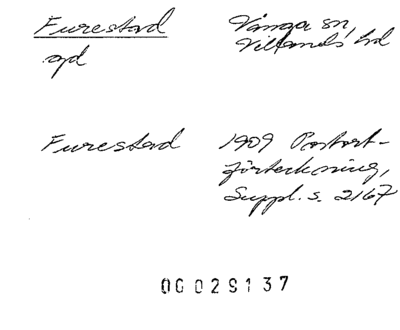 Furestad
gd
Vånga sn,
Villands hd
Furestad
1909 Postort-
förteckning,
Suppl. s. 2167
00029137